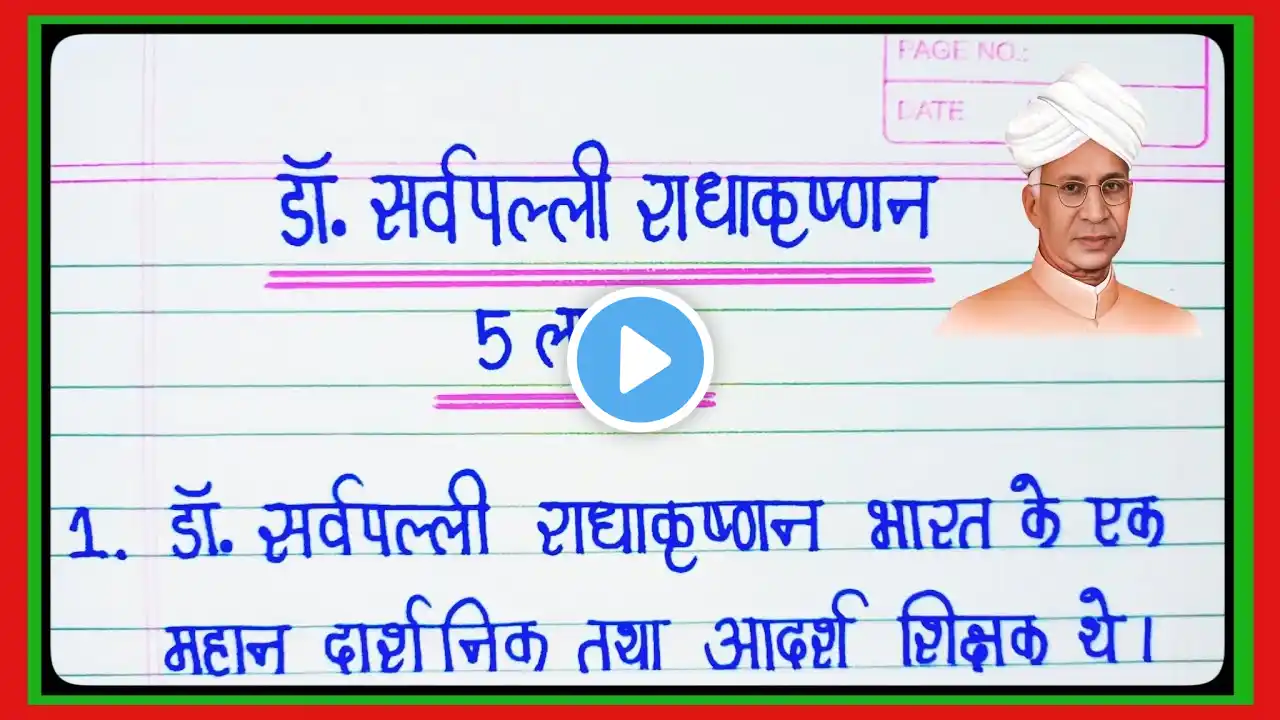 PAGE NO.:
DATE
डॉ. सर्वपल्ली राधाकृष्णन
5
1. डॉ. सर्वपल्ली राधाकृष्णन भारत के एक
महान दार्शनिक तथा आदर्श शिक्षक थे।